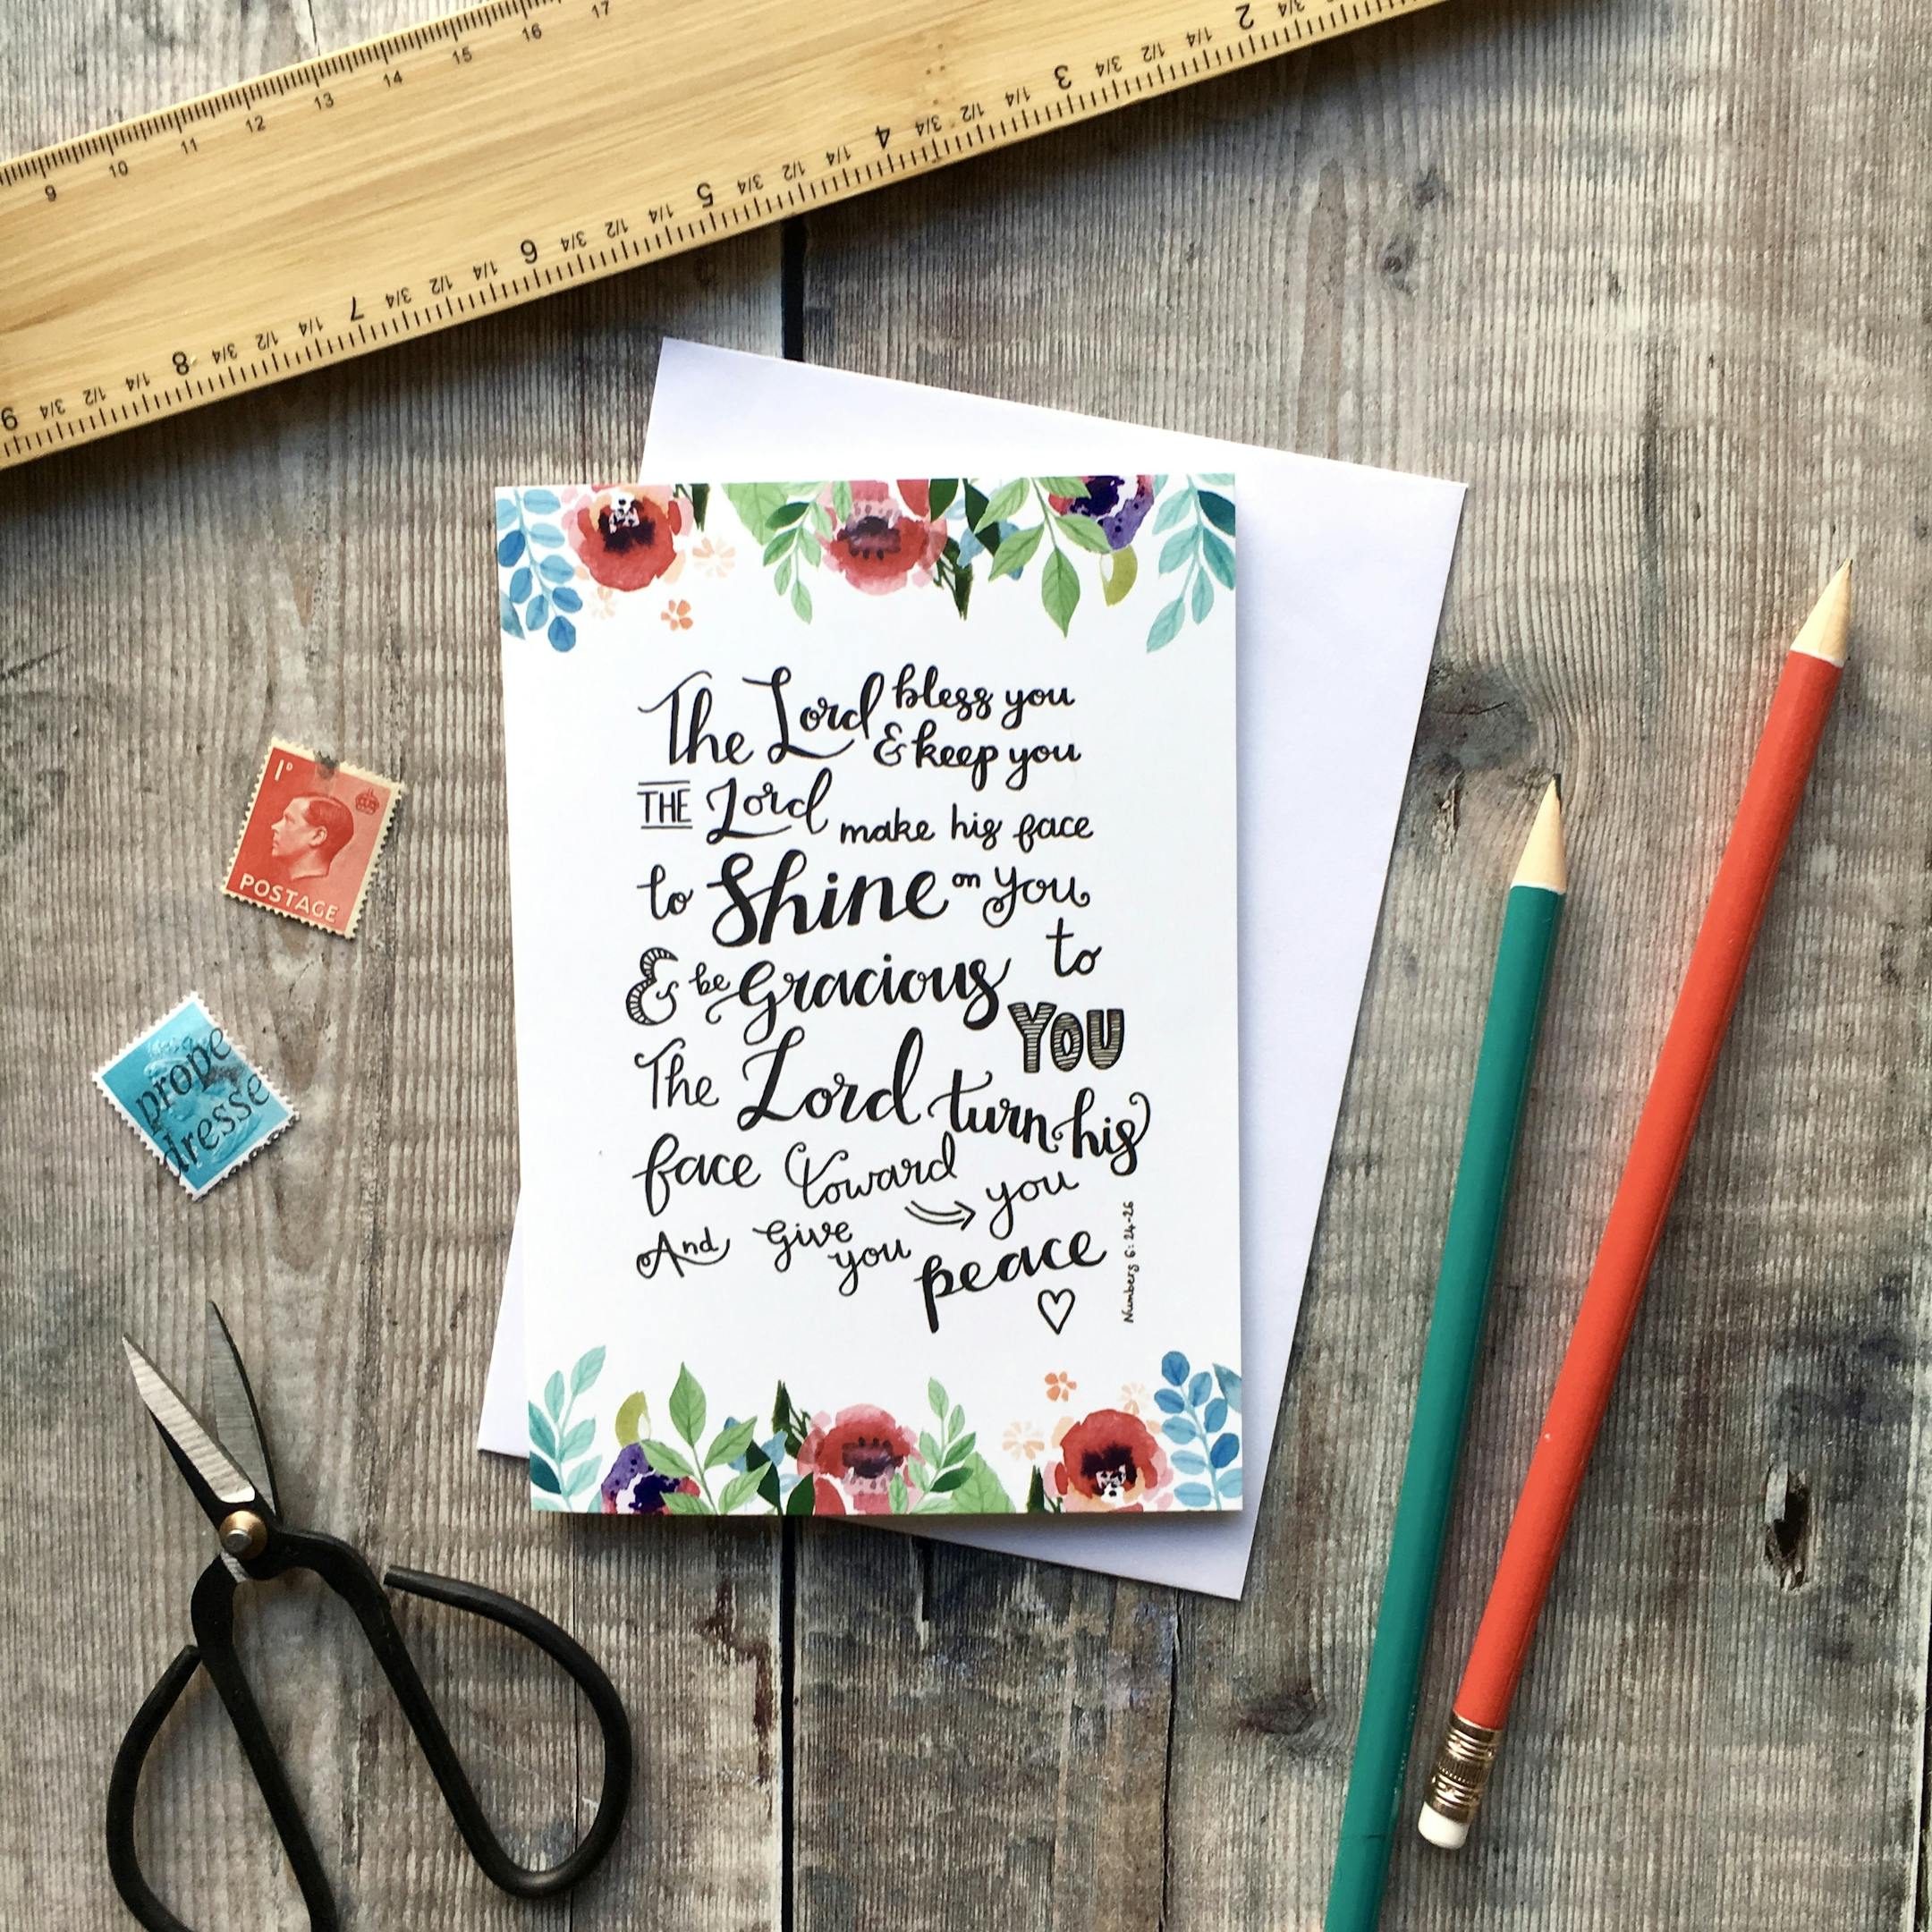 9 10 11 12 13 14 15 16 17
9 3/4 1/2 1/4 8 3/4 1/2 1/4 7 3/4 1/2 1/4 6 3/4 1/2 1/4 5 3/4 1/2 1/4 4 3/4 1/2 1/4 3 3/4 1/2 1/4 2 3/4
The Lord bless you
& keep you
THE Lord make his face
to Shine on you
& be Gracious to
YOU
The Lord turn his
face toward you
And give you peace
Numbers 6:24-26
1D
POSTAGE
prope
dresse